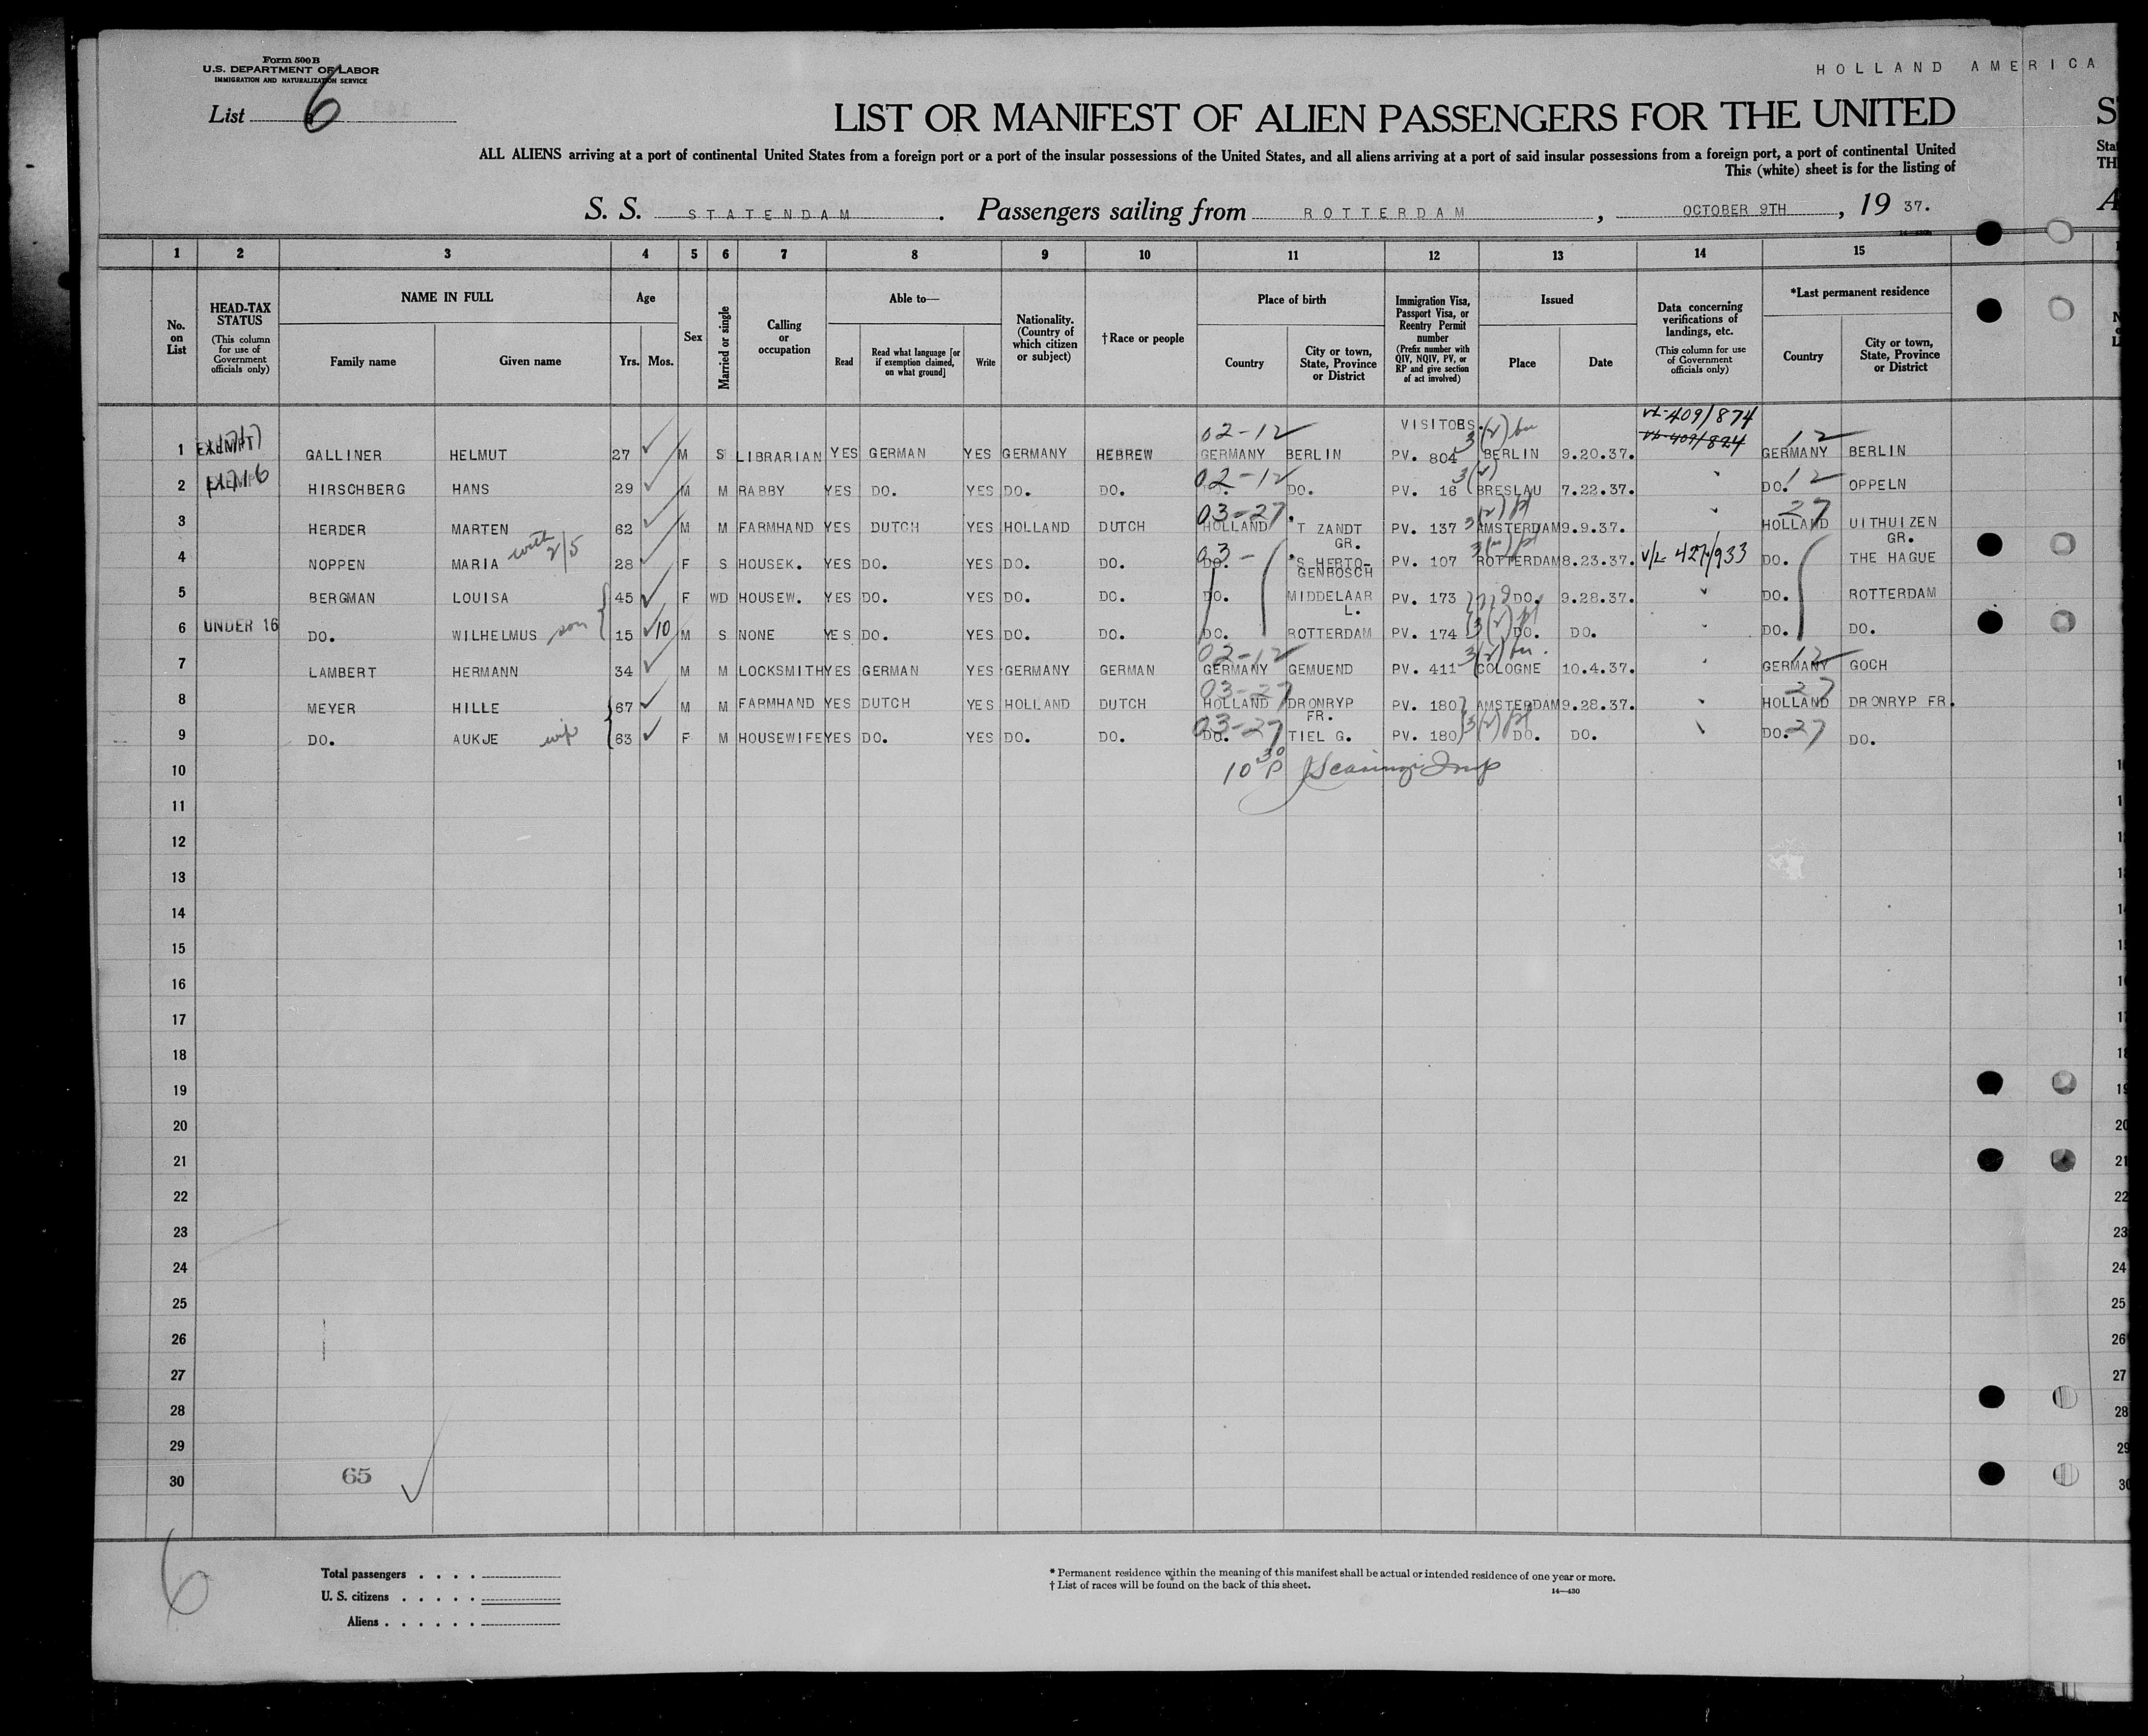 Form 500 B
U.S. DEPARTMENT OF LABOR
IMMIGRATION AND NATURALIZATION SERVICE
HOLLAND AMERICA
List 6
LIST OR MANIFEST OF ALIEN PASSENGERS FOR THE UNITED
ALL ALIENS arriving at a port of continental United States from a foreign port or a port of the insular possessions of the United States, and all aliens arriving at a port of said insular possessions from a foreign port, a port of continental United
This (white) sheet is for the listing of
S. S. STATENDAM. Passengers sailing from ROTTERDAM, OCTOBER 9TH, 19 37.
1 2 3 4 5 6 7 8 9 10 11 12 13 14 15
No. on List
HEAD-TAX STATUS (This column for use of Government officials only)
NAME IN FULL Family name Given name
Age Yrs. Mos.
Sex
Married or single
Calling or occupation
Able to— Read Read what language [or if exemption claimed, on what ground] Write
Nationality. (Country of which citizen or subject)
†Race or people
Place of birth Country City or town, State, Province or District
Immigration Visa, Passport Visa, or Reentry Permit number (Prefix number with QIV, NQIV, PV, or RP and give section of act involved)
Issued Place Date
Data concerning verifications of landings, etc. (This column for use of Government officials only)
*Last permanent residence Country City or town, State, Province or District
VISITORS.
02-12 409/874
1 EXEMPT GALLINER HELMUT 27 M S LIBRARIAN YES GERMAN YES GERMANY HEBREW GERMANY BERLIN PV. 804 BERLIN 9.20.37. GERMANY 12 BERLIN
2 EXEMPT HIRSCHBERG HANS 29 M M RABBY YES DO. YES DO. DO. 02-12 DO. PV. 16 BRESLAU 7.22.37. DO. 12 OPPELN
3 HERDER MARTEN 62 M M FARMHAND YES DUTCH YES HOLLAND DUTCH 03-27 HOLLAND 'T ZANDT GR. PV. 137 AMSTERDAM 9.9.37. HOLLAND 27 UITHUIZEN GR.
4 NOPPEN MARIA with 2/5 28 F S HOUSEK. YES DO. YES DO. DO. 03- DO. 'S HERTO-GENBOSCH PV. 107 ROTTERDAM 8.23.37. V/L 427/933 DO. THE HAGUE
5 BERGMAN LOUISA 45 F WD HOUSEW. YES DO. YES DO. DO. DO. MIDDELAAR L. PV. 173 DO. 9.28.37. DO. ROTTERDAM
6 UNDER 16 DO. WILHELMUS son 15 10 M S NONE YES DO. YES DO. DO. DO. ROTTERDAM PV. 174 DO. DO. DO. DO.
7 LAMBERT HERMANN 34 M M LOCKSMITH YES GERMAN YES GERMANY GERMAN 02-12 GERMANY GEMUEND PV. 411 COLOGNE 10.4.37. GERMANY 12 GOCH
8 MEYER HILLE 67 M M FARMHAND YES DUTCH YES HOLLAND DUTCH 03-27 HOLLAND DRONRYP FR. PV. 180 AMSTERDAM 9.28.37. HOLLAND 27 DRONRYP FR.
9 DO. AUKJE wife 63 F M HOUSEWIFE YES DO. YES DO. DO. 03-27 DO. TIEL G. PV. 180 DO. DO. DO. 27 DO.
10 10 30 P
11
12
13
14
15
16
17
18
19
20
21
22
23
24
25
26
27
28
29
30 65
6
Total passengers
U. S. citizens
Aliens
* Permanent residence within the meaning of this manifest shall be actual or intended residence of one year or more.
† List of races will be found on the back of this sheet.
14—430